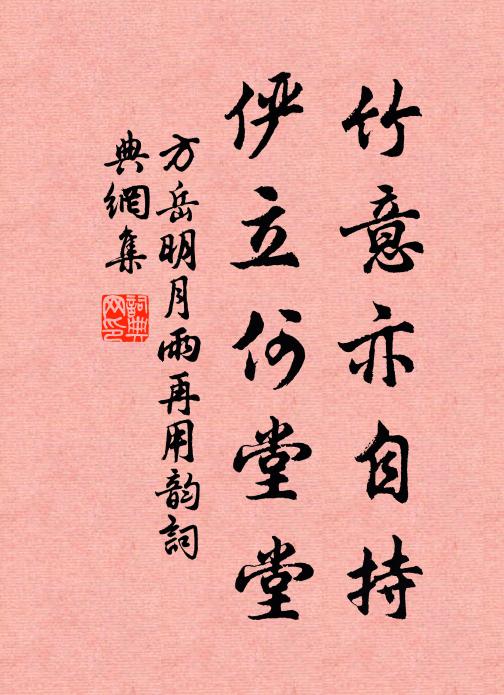 竹意亦自持
俨立何堂堂
方岳明月雨再用韵詞
典網集
詞典
网印